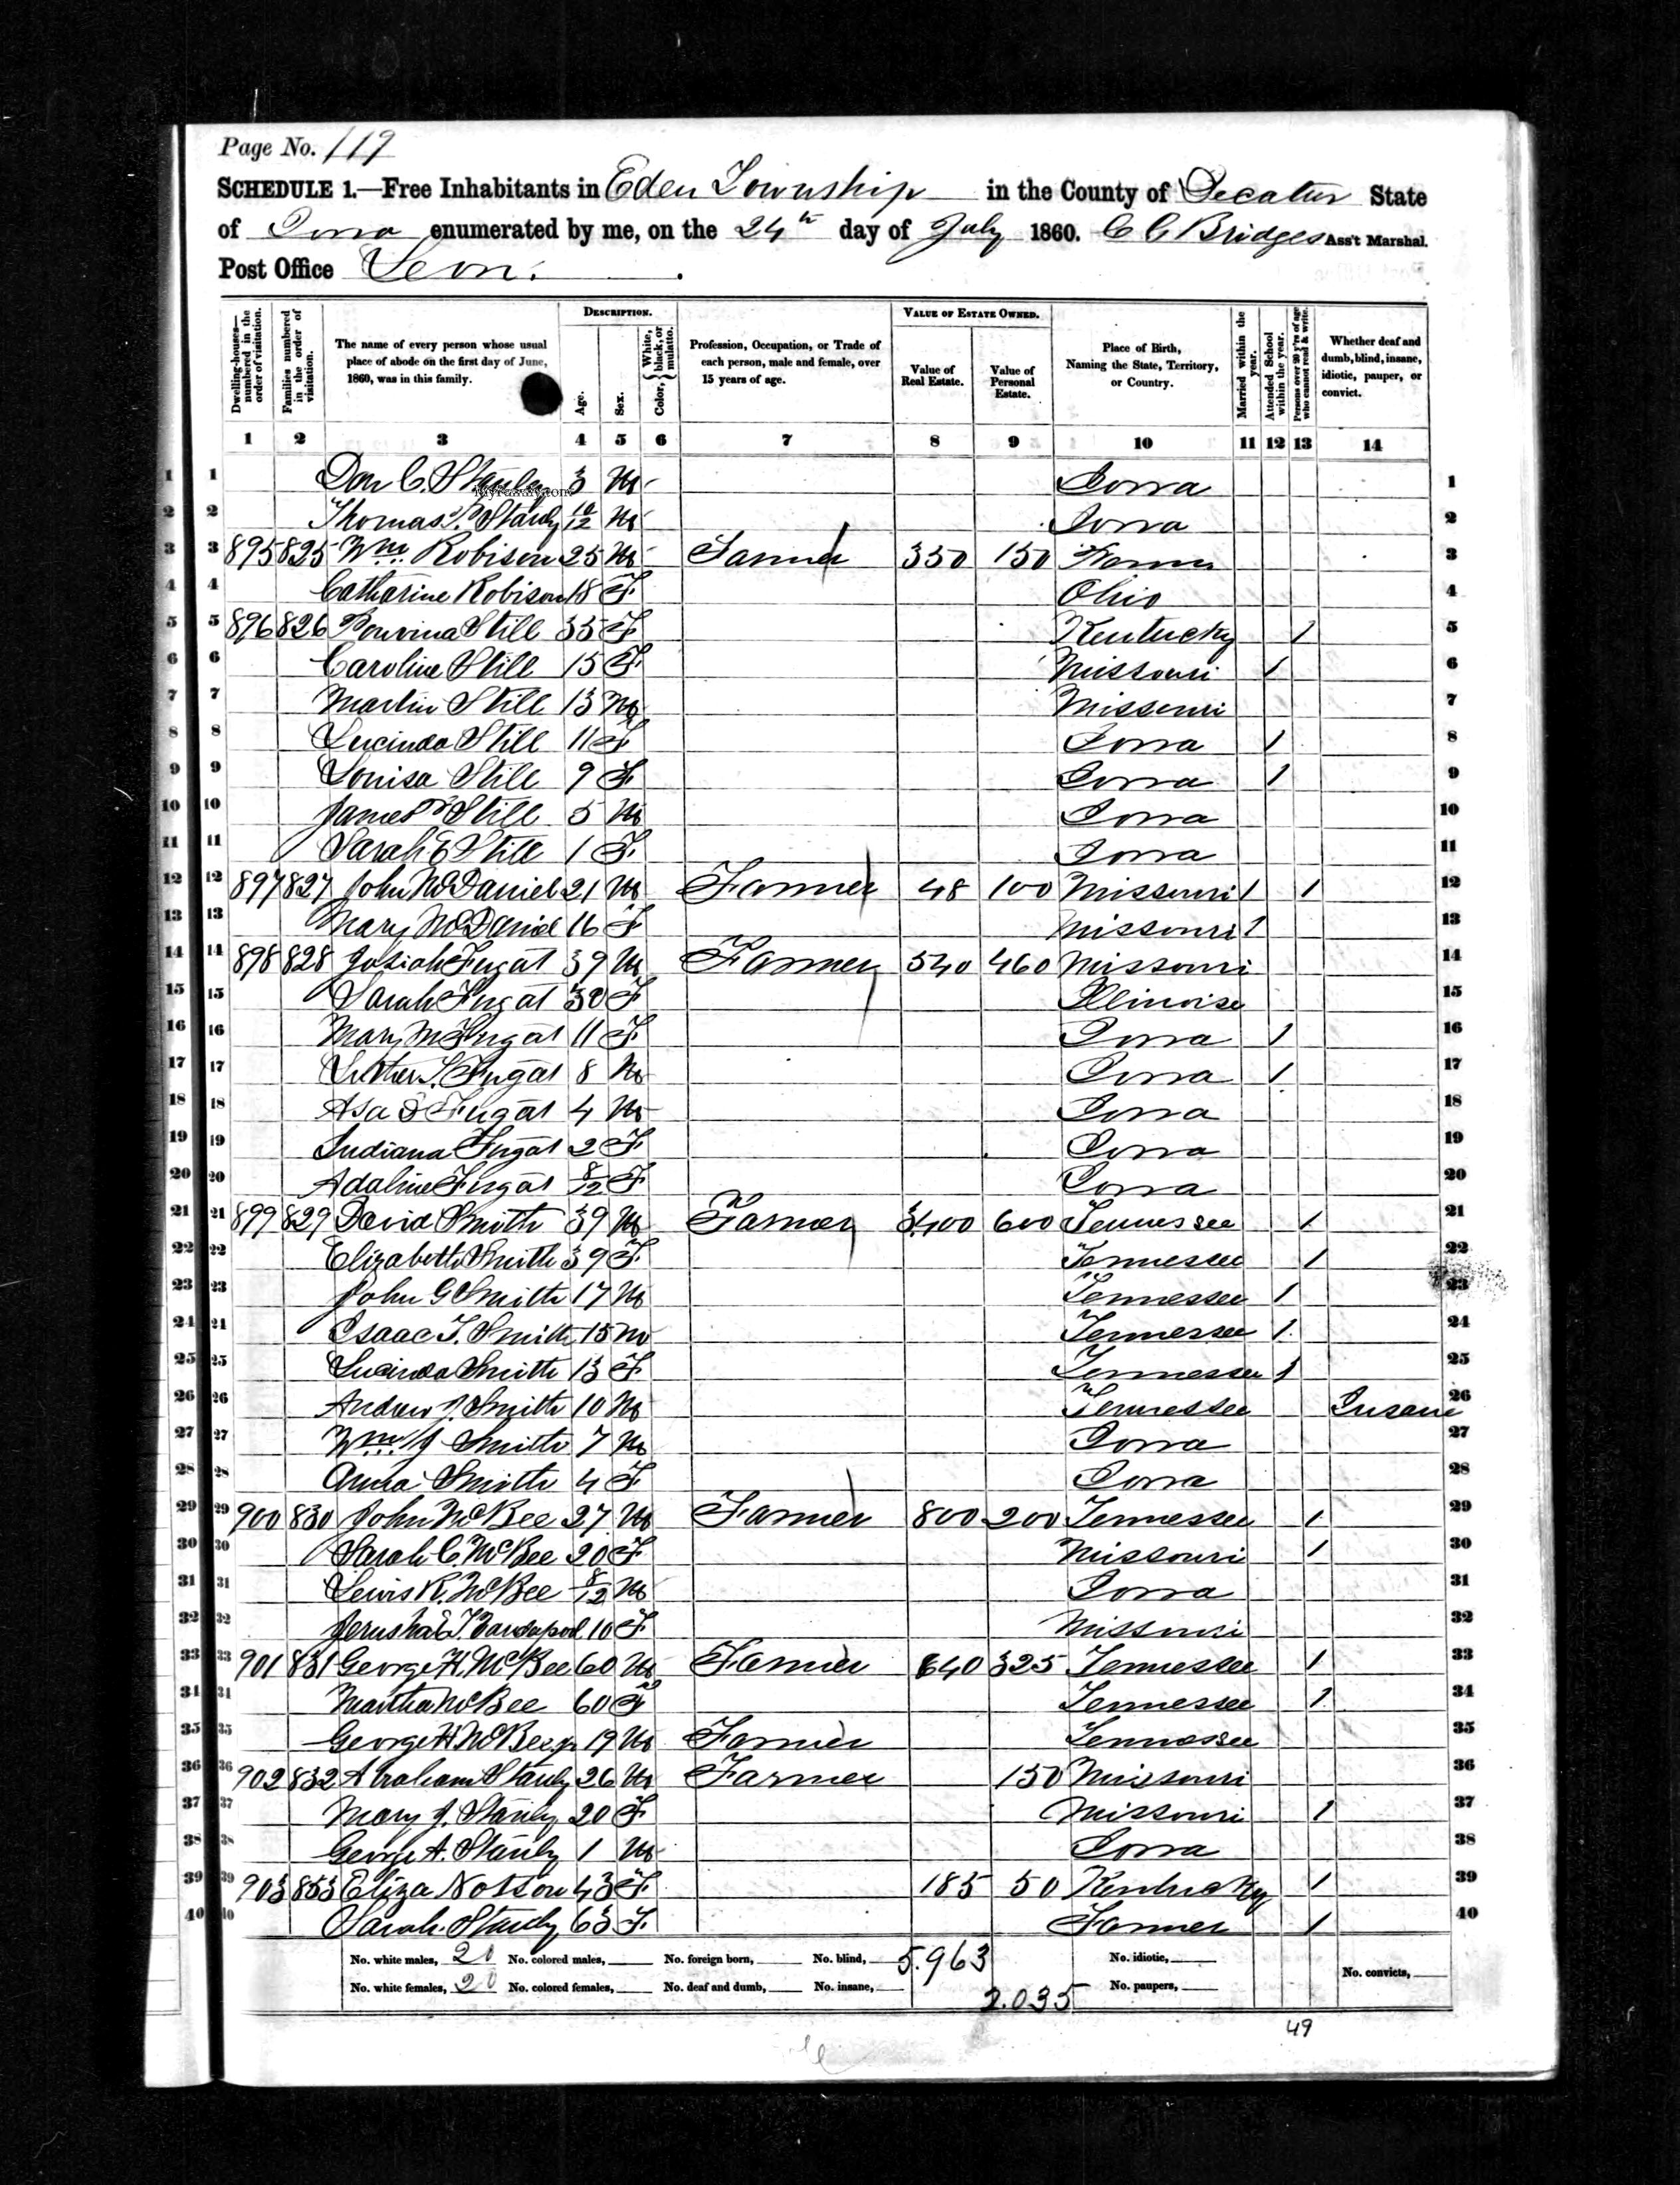 Page No. 119
SCHEDULE 1.—Free Inhabitants in Eden Township in the County of Decatur State
of Iowa enumerated by me, on the 24th day of July 1860. C C Bridges Ass't Marshal.
Post Office Leon.
Dwelling-houses—numbered in the order of visitation.
Families numbered in the order of visitation.
The name of every person whose usual place of abode on the first day of June, 1860, was in this family.
DESCRIPTION.
Age.
Sex.
Color, { White, black, or mulatto.
Profession, Occupation, or Trade of each person, male and female, over 15 years of age.
VALUE OF ESTATE OWNED.
Value of Real Estate.
Value of Personal Estate.
Place of Birth, Naming the State, Territory, or Country.
Married within the year.
Attended School within the year.
Persons over 20 y'rs of age who cannot read & write.
Whether deaf and dumb, blind, insane, idiotic, pauper, or convict.
1 2 3 4 5 6 7 8 9 10 11 12 13 14
1 1 Don C. Stanley 3 M Iowa 1
2 2 Thomas Stanly 10/12 M Iowa 2
3 3 895 825 Wm. Robison 25 M Farmer 350 150 3
4 4 Catharine Robison 18 F Ohio 4
5 5 896 826 Still 35 F Kentucky 1 5
6 6 Caroline Still 15 F Missouri 1 6
7 7 Martin Still 13 M Missouri 7
8 8 Lucinda Still 11 F Iowa 1 8
9 9 Louisa Still 9 F Iowa 1 9
10 10 James Still 5 M Iowa 10
11 11 Sarah E Still 1 F Iowa 11
12 12 897 827 John McDaniel 21 M Farmer 48 100 Missouri 1 1 12
13 13 Mary McDaniel 16 F Missouri 1 13
14 14 898 828 Josiah Fugat 39 M Farmer 540 460 Missouri 14
15 15 Sarah Fugat 30 F Illinoise 15
16 16 Mary M Fugat 11 F Iowa 1 16
17 17 Luther S. Fugat 8 M Iowa 1 17
18 18 Asa Fugat 4 M Iowa 18
19 19 Indiana Fugat 2 F Iowa 19
20 20 Adaline Fugat 8/12 F Iowa 20
21 21 899 829 David Smith 39 M Farmer 3,400 600 Tennessee 1 21
22 22 Elizabeth Smith 39 F Tennessee 1 22
23 23 John G Smith 17 M Tennessee 1 23
24 24 Isaac T. Smith 15 M Tennessee 1 24
25 25 Lucinda Smith 13 F Tennessee 1 25
26 26 Andrew J. Smith 10 M Tennessee Insane 26
27 27 Wm. J Smith 7 M Iowa 27
28 28 Anna Smith 4 F Iowa 28
29 29 900 830 John McBee 27 M Farmer 800 200 Tennessee 1 29
30 30 Sarah C McBee 20 F Missouri 1 30
31 31 Lewis R. McBee 8/12 M Iowa 31
32 32 Jerusha 10 F Missouri 32
33 33 901 831 George H. McBee 60 M Farmer 640 325 Tennessee 1 33
34 34 Martha McBee 60 F Tennessee 1 34
35 35 George H McBee jr 19 M Farmer Tennessee 35
36 36 902 832 Abraham Stanly 26 M Farmer 150 Missouri 36
37 37 Mary J. Stanly 20 F Missouri 1 37
38 38 George A. Stanly 1 M Iowa 38
39 39 903 833 Eliza Notson 43 F 185 50 Kentucky 1 39
40 40 Sarah Stanly 63 F Farmer 1 40
No. white males, 20 No. colored males, No. foreign born, No. blind, 5.963 No. idiotic,
No. white females, 20 No. colored females, No. deaf and dumb, No. insane, 2.035 No. paupers, No. convicts,
49